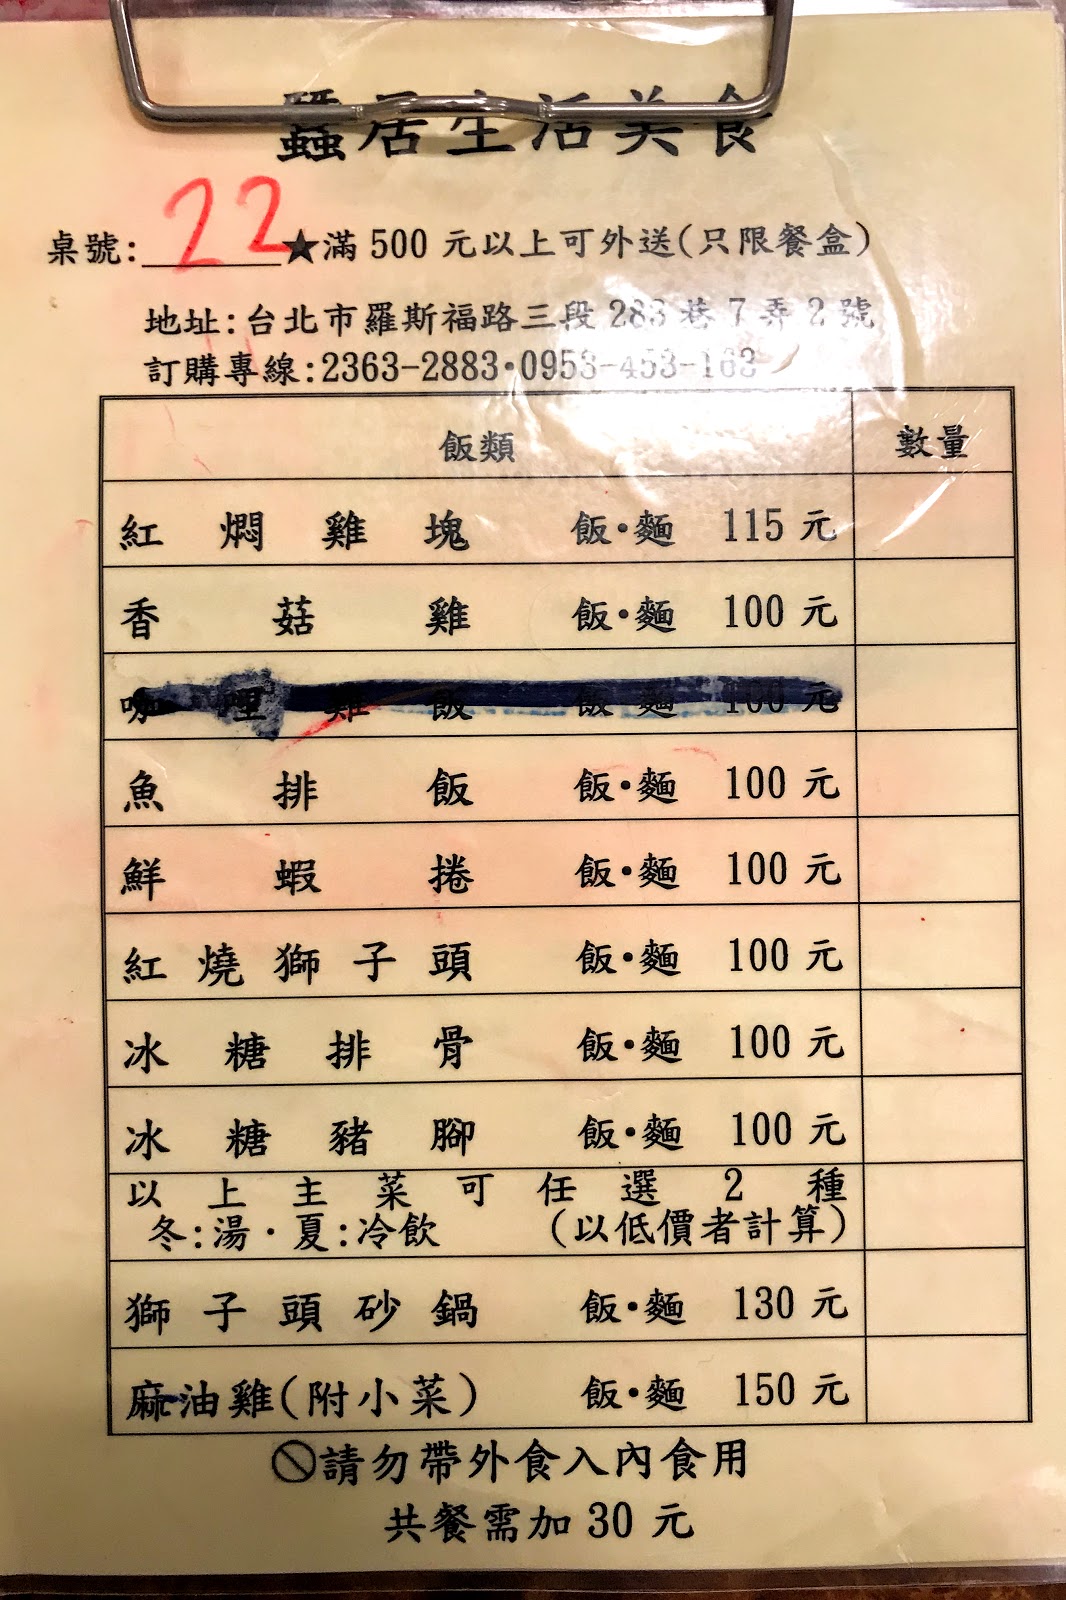 蠶居生活美食
桌號:22★滿500元以上可外送(只限餐盒)
地址:台北市羅斯福路三段283巷7弄2號
訂購專線:2363-2883·0953-453-163
飯類 數量
紅燜雞塊 飯·麵 115元
香菇雞 飯·麵 100元
咖哩雞飯 飯 麵 100元
魚排飯 飯·麵 100元
鮮蝦捲 飯·麵 100元
紅燒獅子頭 飯·麵 100元
冰糖排骨 飯·麵 100元
冰糖豬腳 飯·麵 100元
以上主菜可任選2種
冬:湯·夏:冷飲 (以低價者計算)
獅子頭砂鍋 飯·麵 130元
麻油雞(附小菜) 飯·麵 150元
請勿帶外食入內食用
共餐需加30元